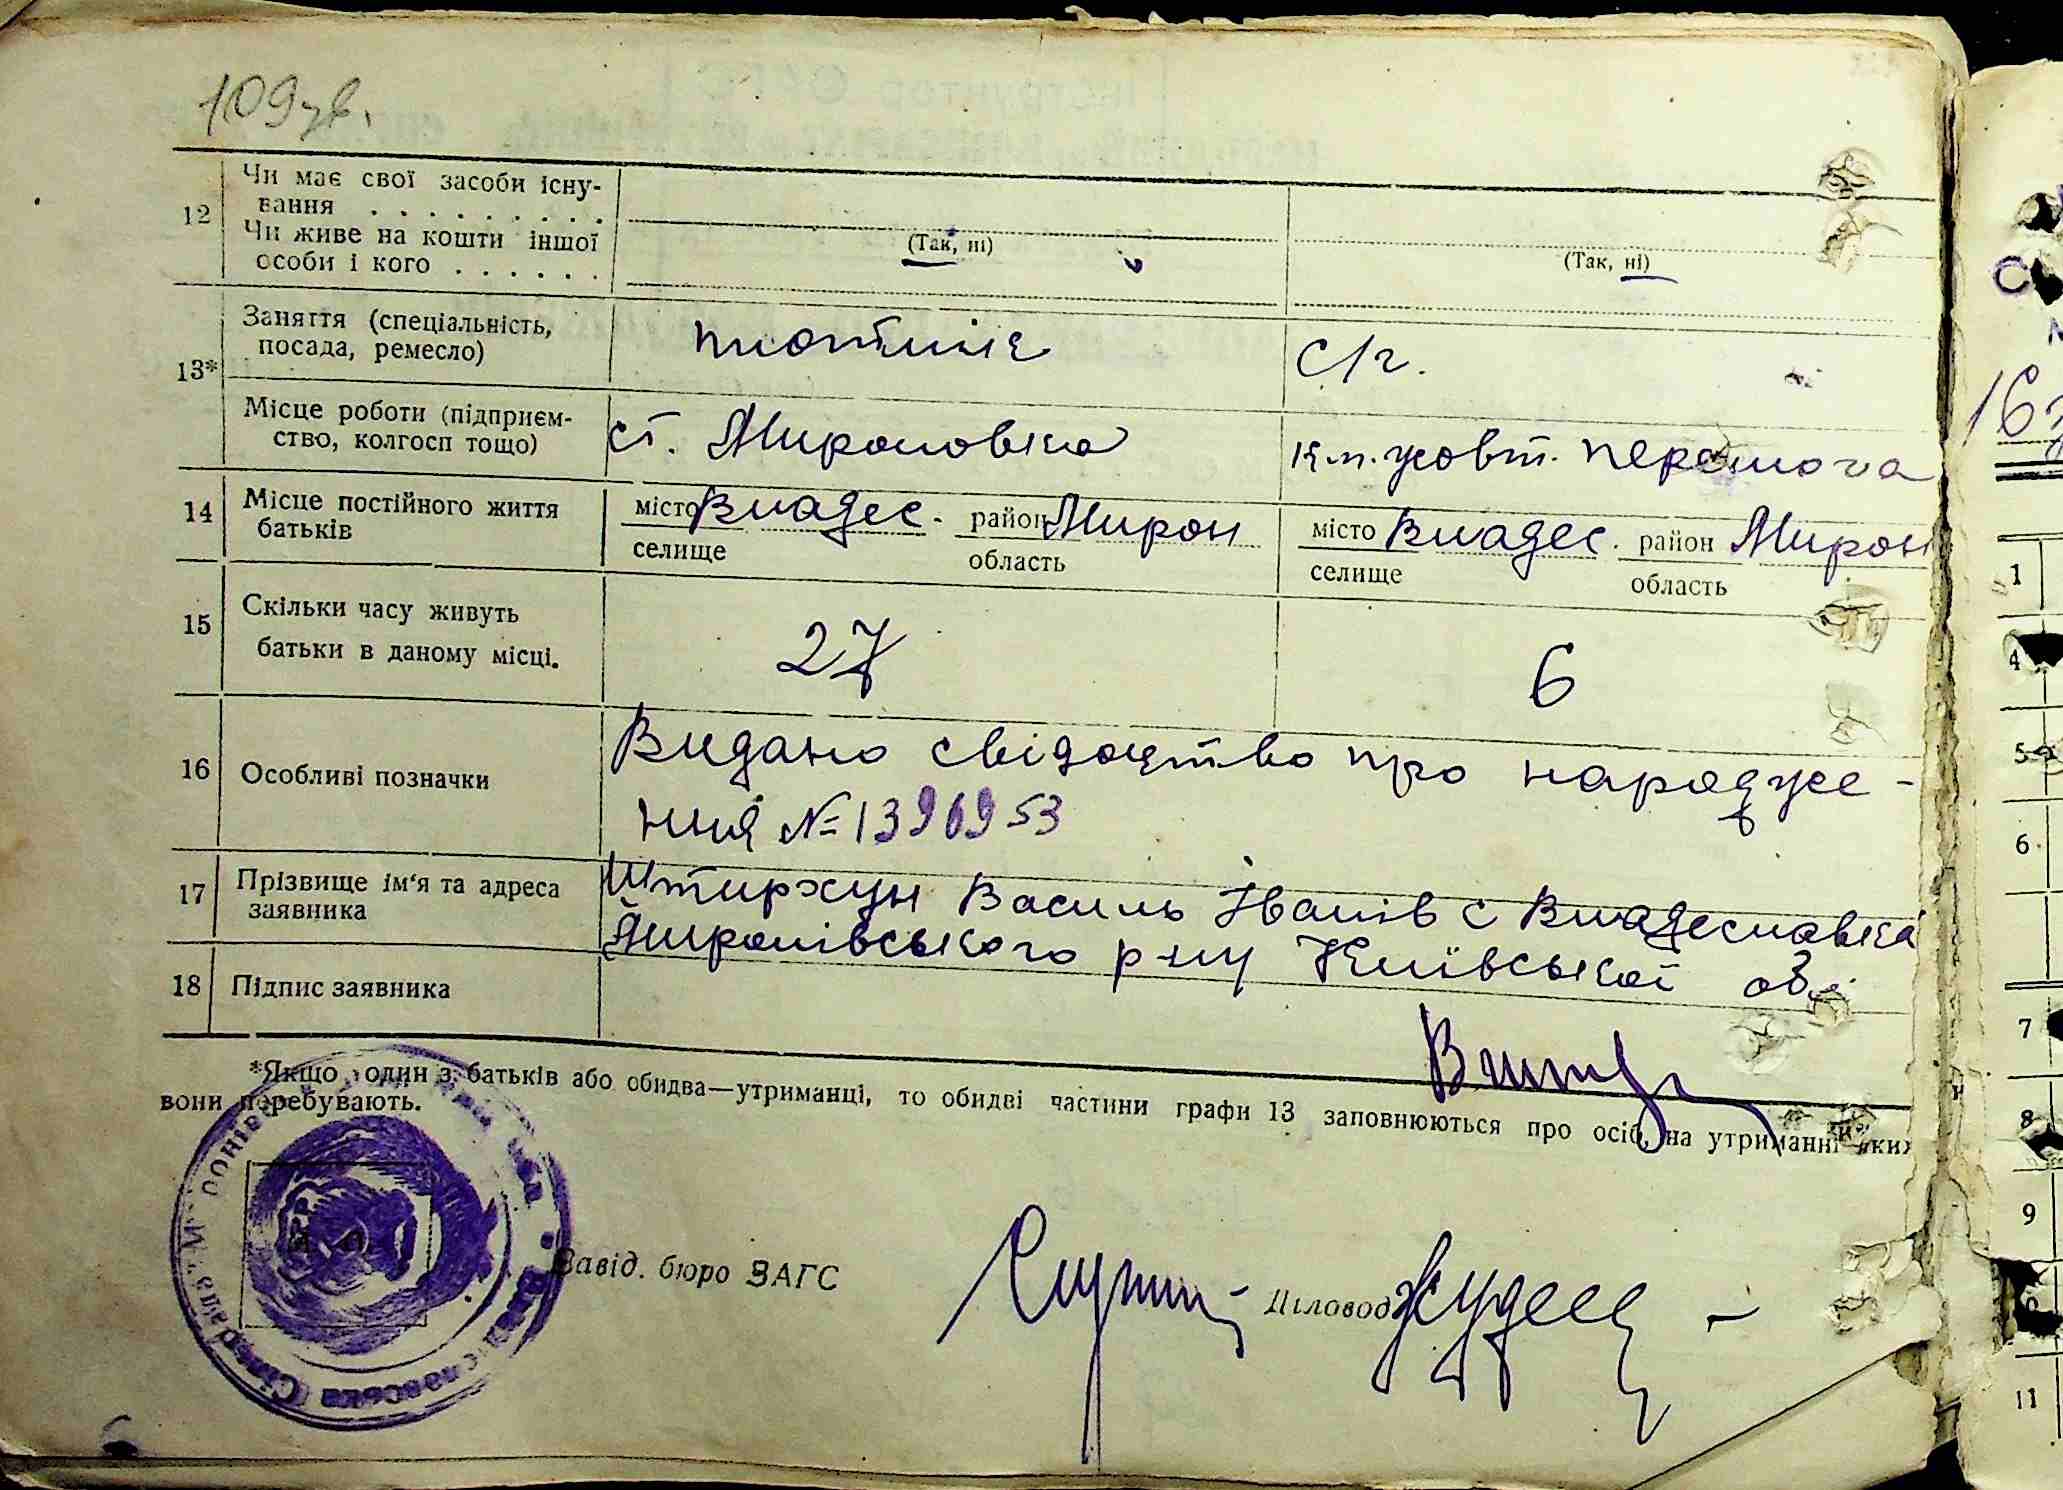 109 зв.
12 Чи має свої засоби існу-
вання . . . . . . . . .
Чи живе на кошти іншої
особи і кого . . . . . .
(Так, ні) (Так, ні)
13* Заняття (спеціальність,
посада, ремесло)
с/г.
Місце роботи (підприєм-
ство, колгосп тощо)
ст. Мироновка к-п. жовт. перемога
14 Місце постійного життя
батьків
місто Владес. район Мирон місто Владес. район Мирон
селище область селище область
15 Скільки часу живуть
батьки в даному місці.
27 6
16 Особливі позначки
Видано свідоцтво про народже-
ння № 1396953
17 Прізвище ім‘я та адреса
заявника
Штирхун Василь Іванів с Владеславка
Миронівського р-ну Київської об.
18 Підпис заявника
*Якщо один з батьків або обидва—утриманці, то обидві частини графи 13 заповнюються про осіб, на утриманні яких
вони перебувають.
Завід. бюро ЗАГС
Діловод
16
1
4
5
6
7
8
9
11